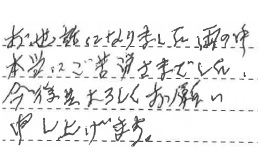 お世話になりました 雨の中
本当にご苦労さまでした。
今後共よろしくお願い
申し上げます。